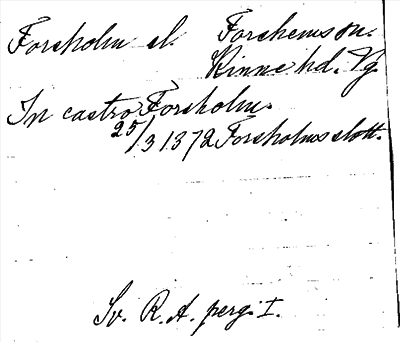 Forsholm sl. Forshems sn.
Kinne hd. Vg
In castro Forsholm.
25/3 1372 Forsholms slott.
Sv. R. A. perg. I.